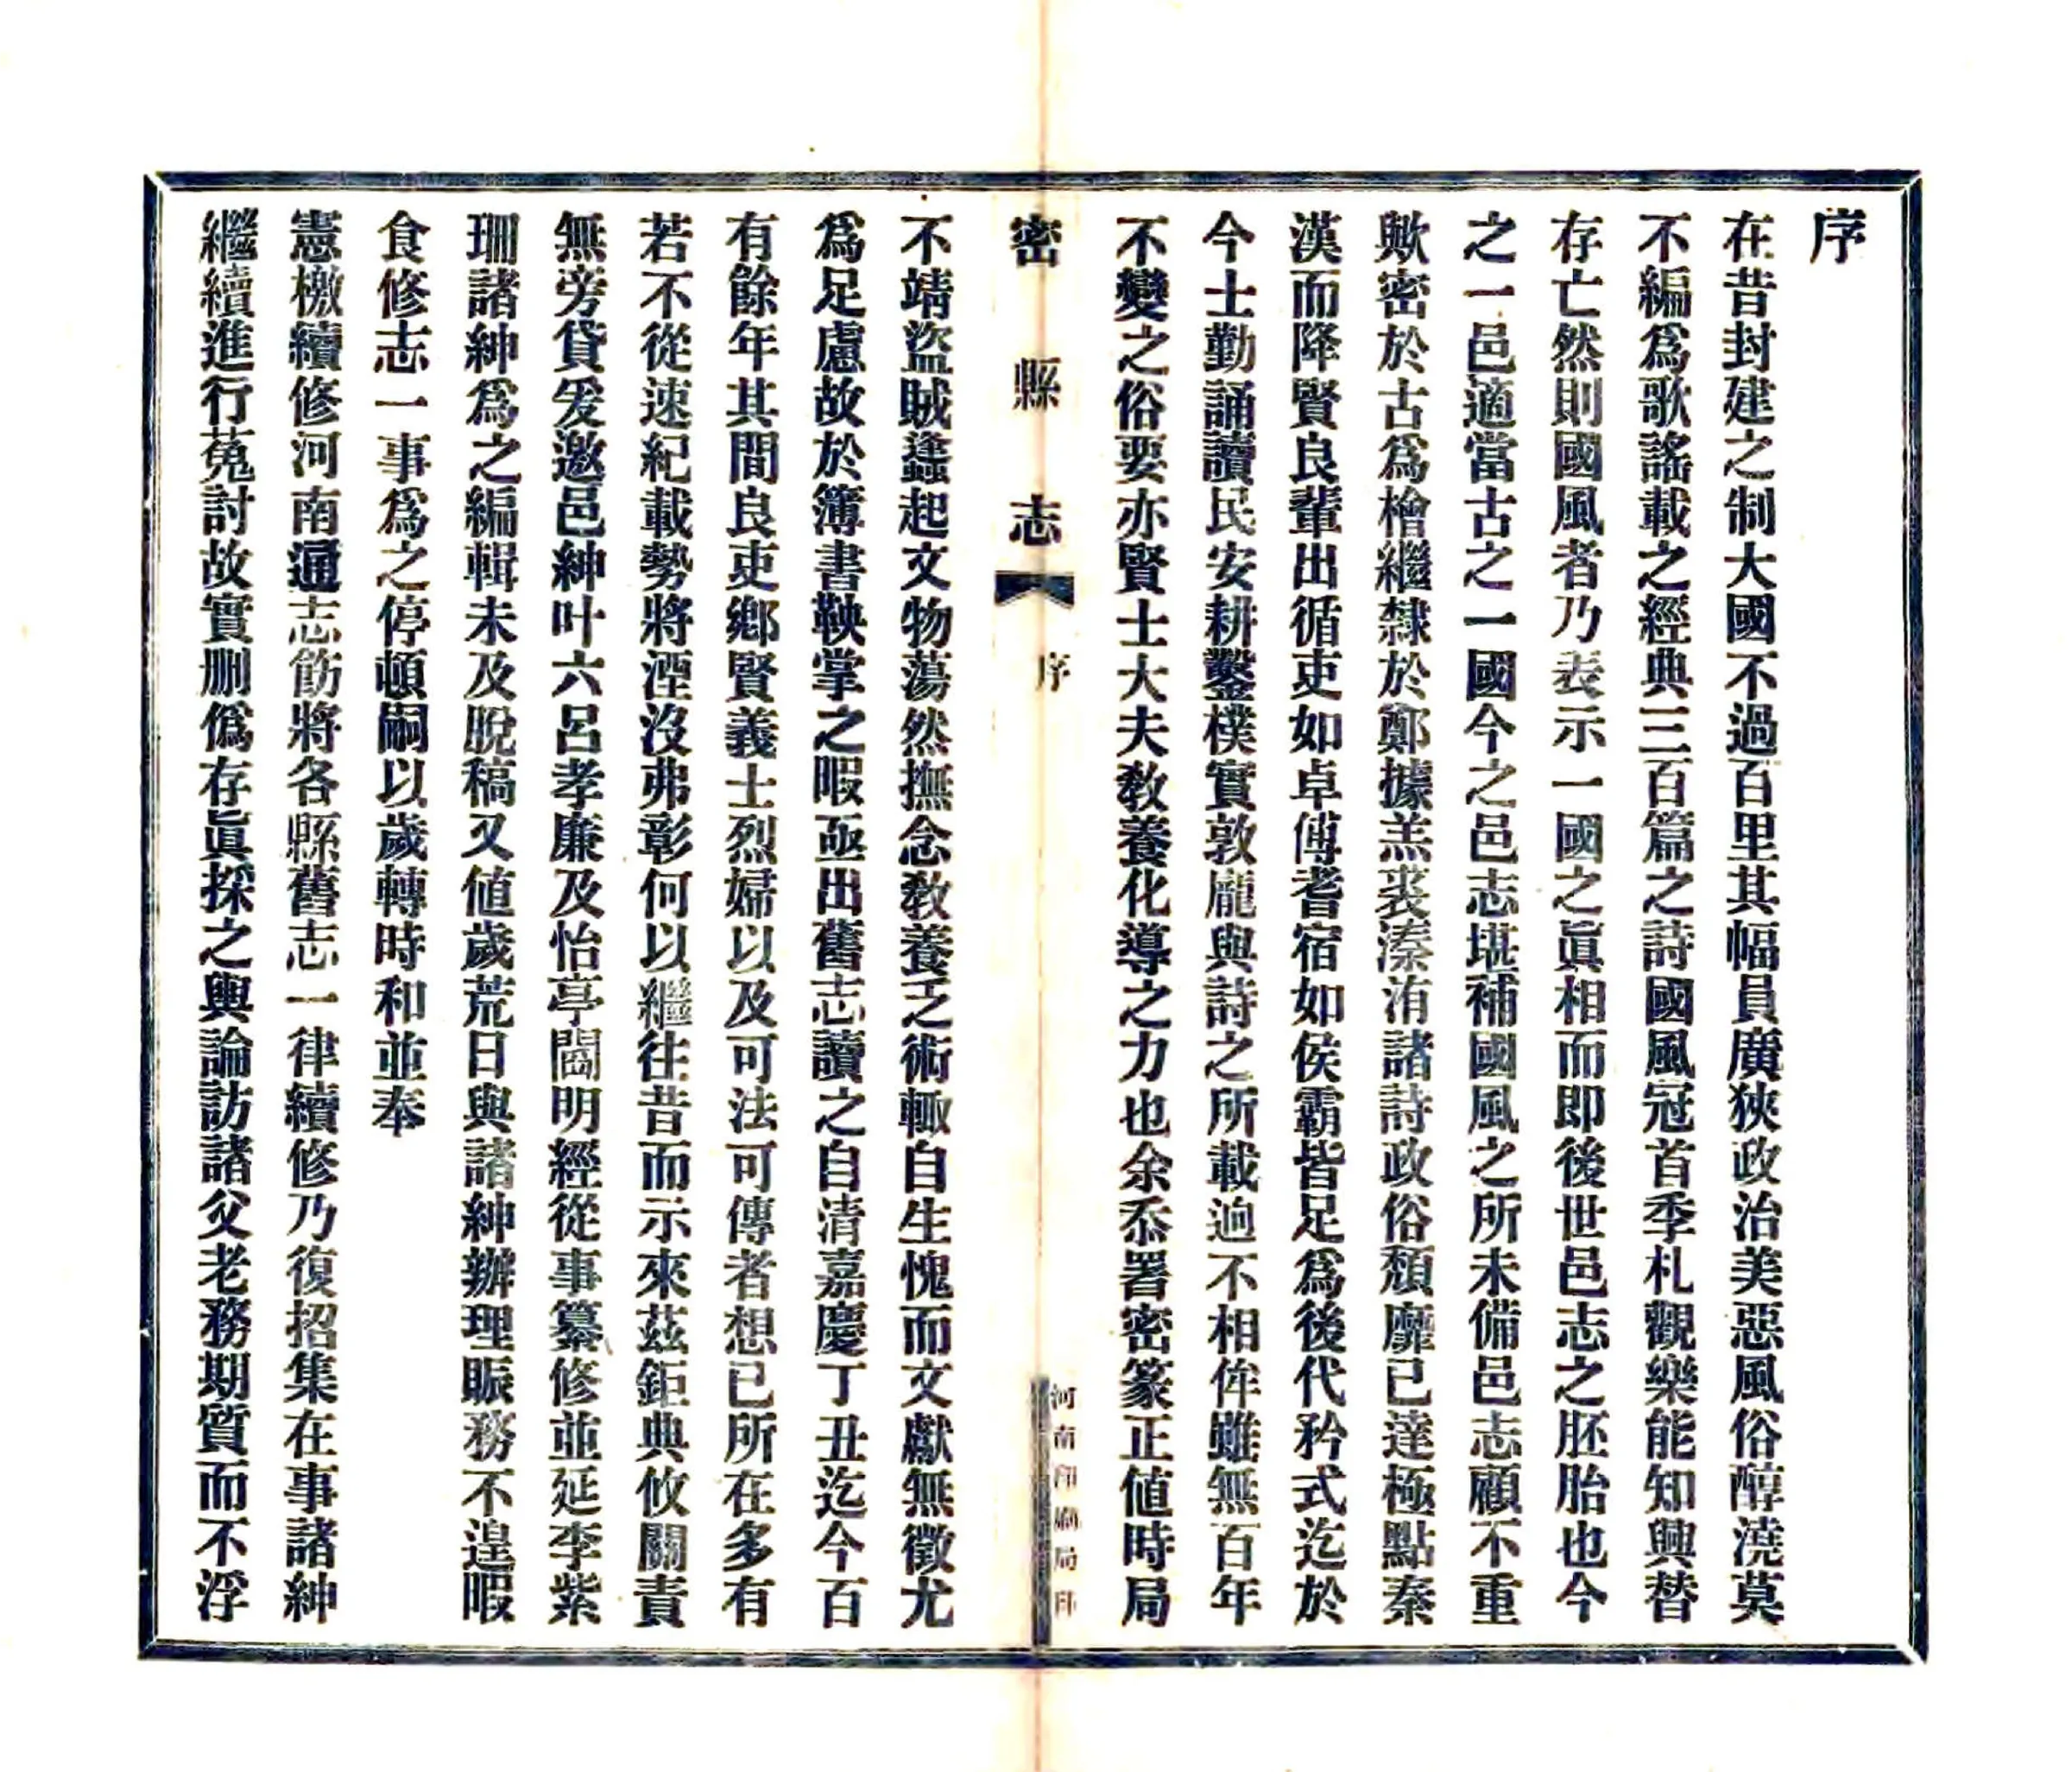 序
在昔封建之制大國不過百里其幅員廣狹政治美惡風俗醇澆莫
不編爲歌謠載之經典三百篇之詩國風冠首季札觀樂能知興替
存亡然則國風者乃表示一國之眞相而即後世邑志之胚胎也今
之一邑適當古之一國今之邑志堪補國風之所未備邑志顧不重
歟密於古爲檜繼隸於鄭據羔裘溱洧諸詩政俗頹靡已達極點秦
漢而降賢良輩出循吏如卓傅耆宿如侯霸皆足爲後代矜式迄於
今士勤誦讀民安耕鑿樸實敦龐與詩之所載迥不相侔雖無百年
不變之俗要亦賢士大夫教養化導之力也余忝署密篆正値時局
密縣志 序
河南印刷局印
不靖盜賊蠭起文物蕩然撫念教養乏術輙自生愧而文獻無徵尤
爲足慮故於簿書鞅掌之暇亟出舊志讀之自清嘉慶丁丑迄今百
有餘年其間良吏鄉賢義士烈婦以及可法可傳者想已所在多有
若不從速紀載勢將湮沒弗彰何以繼往昔而示來茲鉅典攸關責
無旁貸爰邀邑紳叶六呂孝廉及怡亭閻明經從事纂修並延李紫
珊諸紳爲之編輯未及脫稿又値歲荒日與諸紳辦理賑務不遑暇
食修志一事爲之停頓嗣以歲轉時和並奉
憲檄續修河南通志飭將各縣舊志一律續修乃復招集在事諸紳
繼續進行蒐討故實刪僞存眞採之輿論訪諸父老務期質而不浮